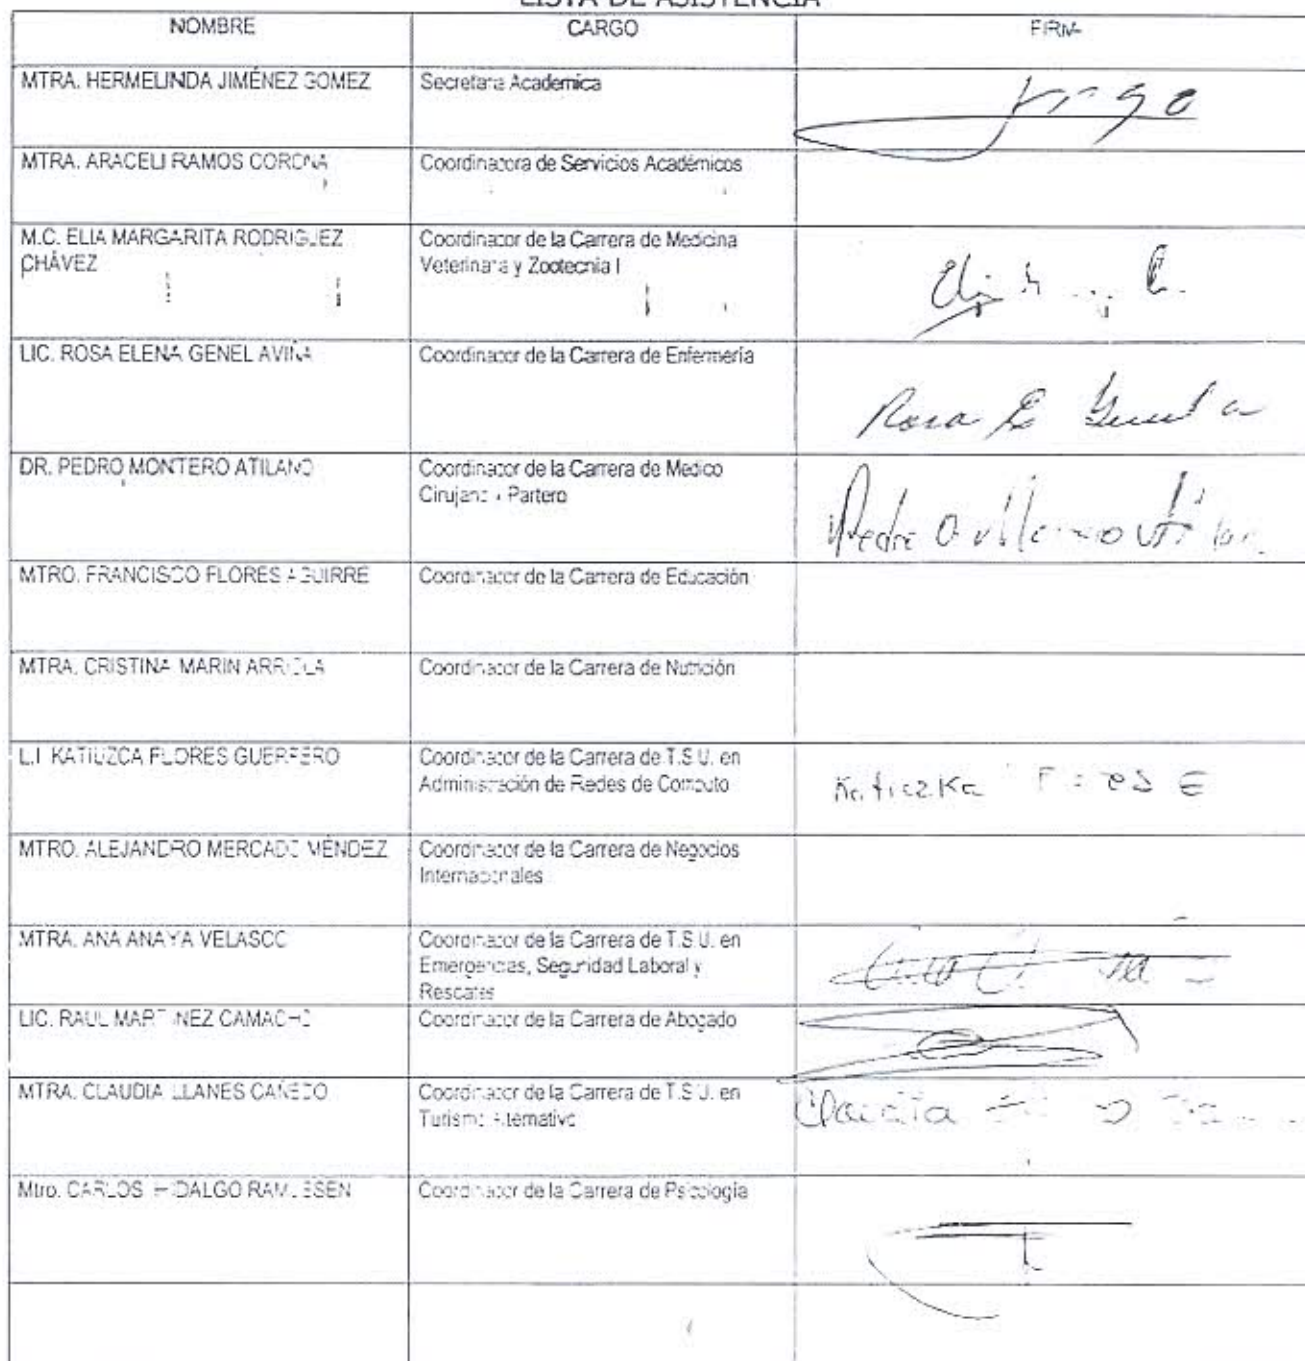 LISTA DE ASISTENCIA
NOMBRE CARGO FIRMA
MTRA. HERMELINDA JIMÉNEZ GOMEZ Secretaria Academica
MTRA. ARACELI RAMOS CORONA Coordinadora de Servicios Académicos
M.C. ELIA MARGARITA RODRIGUEZ Coordinador de la Carrera de Medicina
CHÁVEZ Veterinaria y Zootecnia
LIC. ROSA ELENA GENEL AVIÑA Coordinador de la Carrera de Enfermería
Rosa E
DR. PEDRO MONTERO ATILANO Coordinador de la Carrera de Medico
Cirujano y Partero
Pedro
MTRO. FRANCISCO FLORES AGUIRRE Coordinador de la Carrera de Educación
MTRA. CRISTINA MARIN ARREOLA Coordinador de la Carrera de Nutrición
L.I. KATIUZCA FLORES GUERRERO Coordinador de la Carrera de T.S.U. en
Administración de Redes de Computo
Katiuzka Flores
MTRO. ALEJANDRO MERCADO MÉNDEZ Coordinador de la Carrera de Negocios
Internacionales
MTRA. ANA ANAYA VELASCO Coordinador de la Carrera de T.S.U. en
Emergencias, Seguridad Laboral y
Rescates
LIC. RAUL MARTINEZ CAMACHO Coordinador de la Carrera de Abogado
MTRA. CLAUDIA LLANES CAÑEDO Coordinador de la Carrera de T.S.U. en
Turismo Alternativo
Claudia
Mtro. CARLOS HIDALGO Coordinador de la Carrera de Psicología